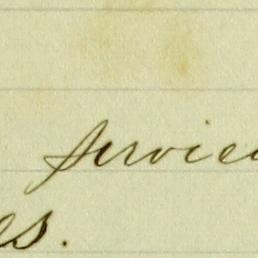 service
es.